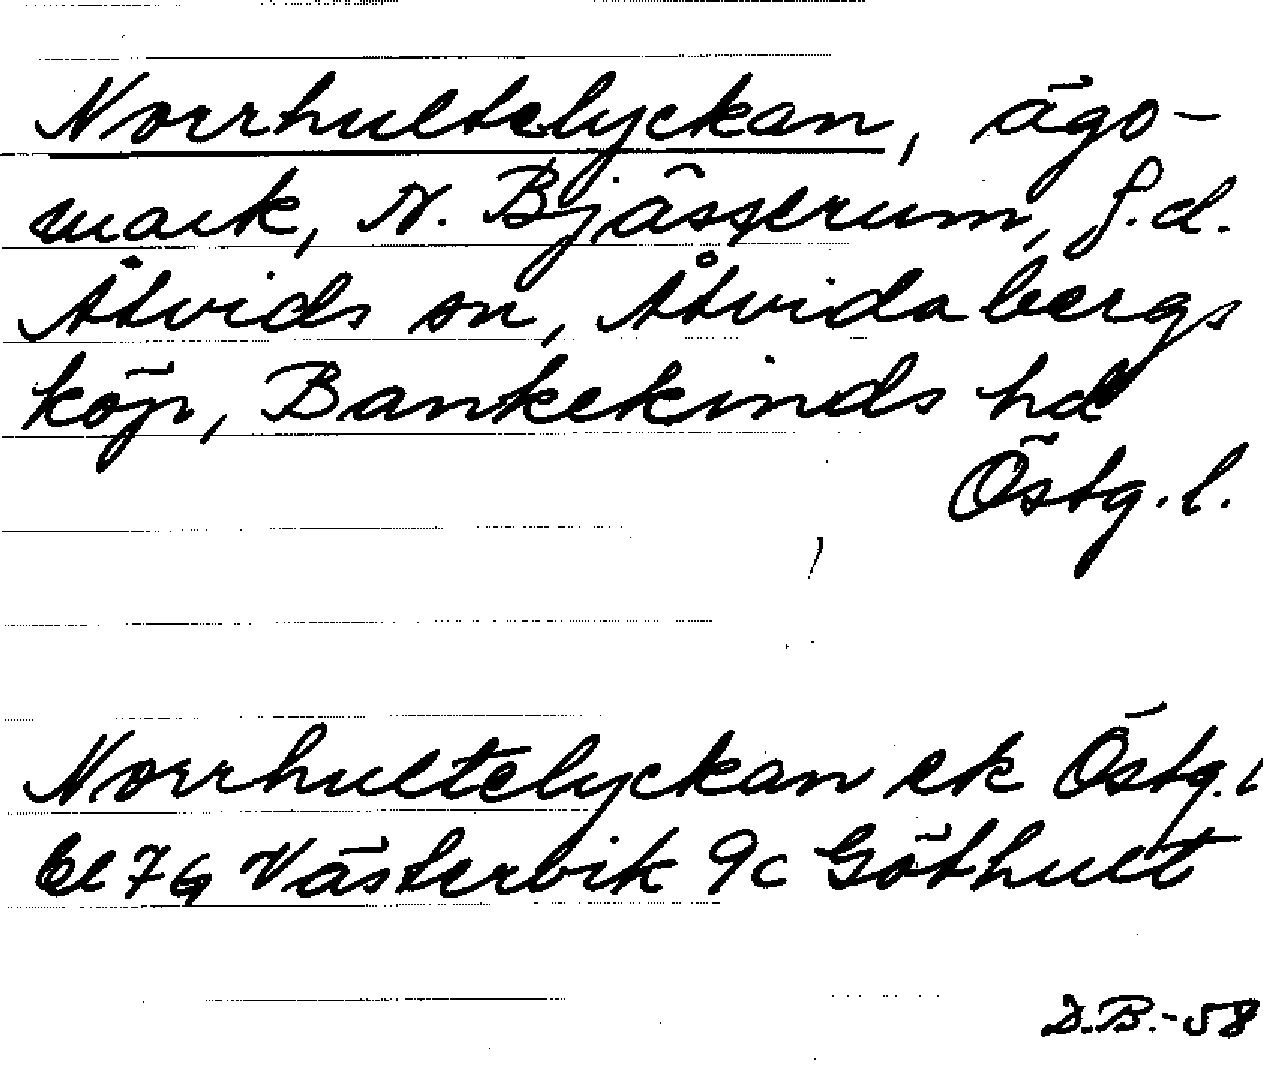 Norrhultelyckan, ägo-
mark, N. Bjässerum, f.d.
Åtvids sn, Åtvidabergs
köp, Bankekinds hd
Östg. l.
Norrhultelyckan ek Östg. l
bl 7G Västervik 9c Göthult
D.B.-58